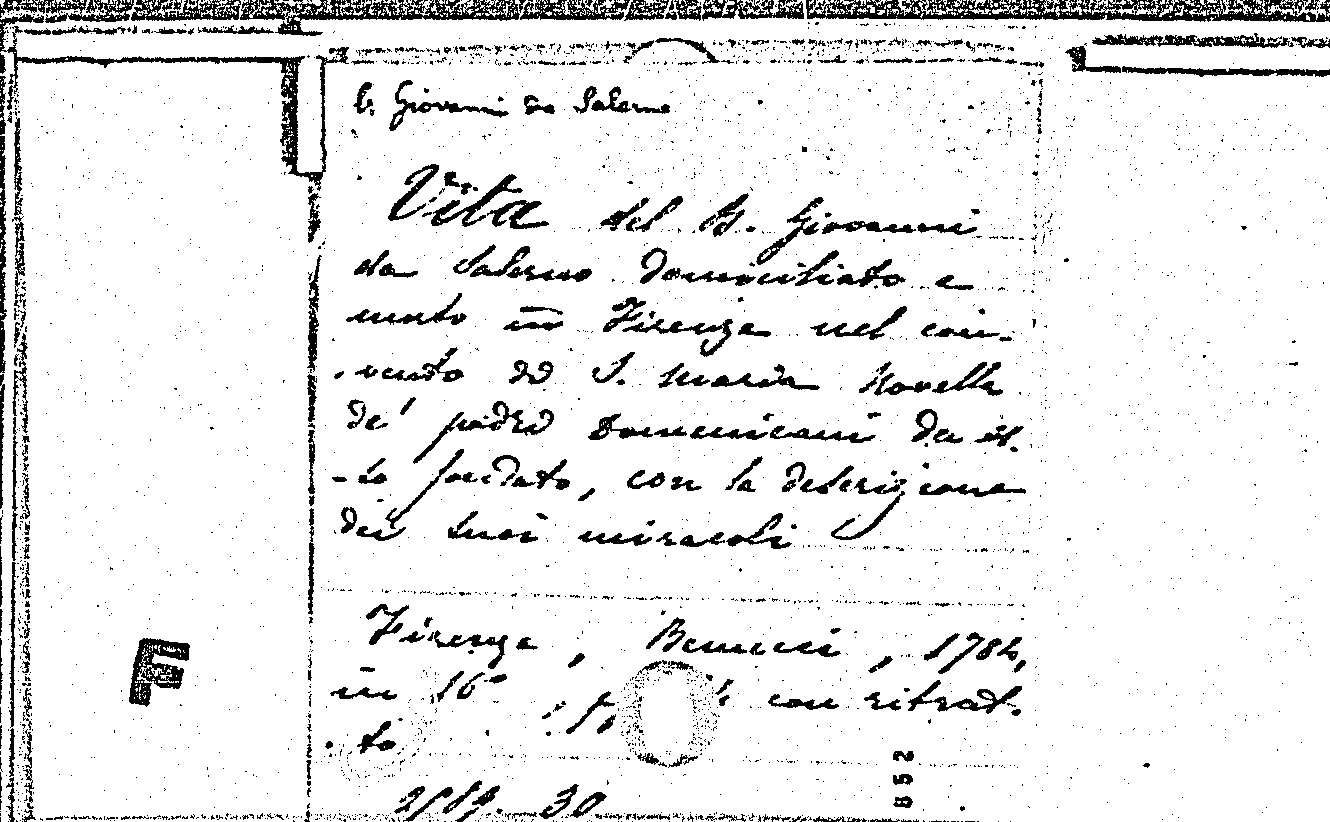 b. Giovanni da Salerno
Vita del B. Giovanni
da Salerno domiciliato e
morto in Firenze nel con-
-vento di S. Maria Novella
de' padri Domenicani da es-
-so fondato, con la descrizione
dei suoi miracoli
Firenze, Benucci, 1784,
in 16° con ritrat-
-to
30
852
F